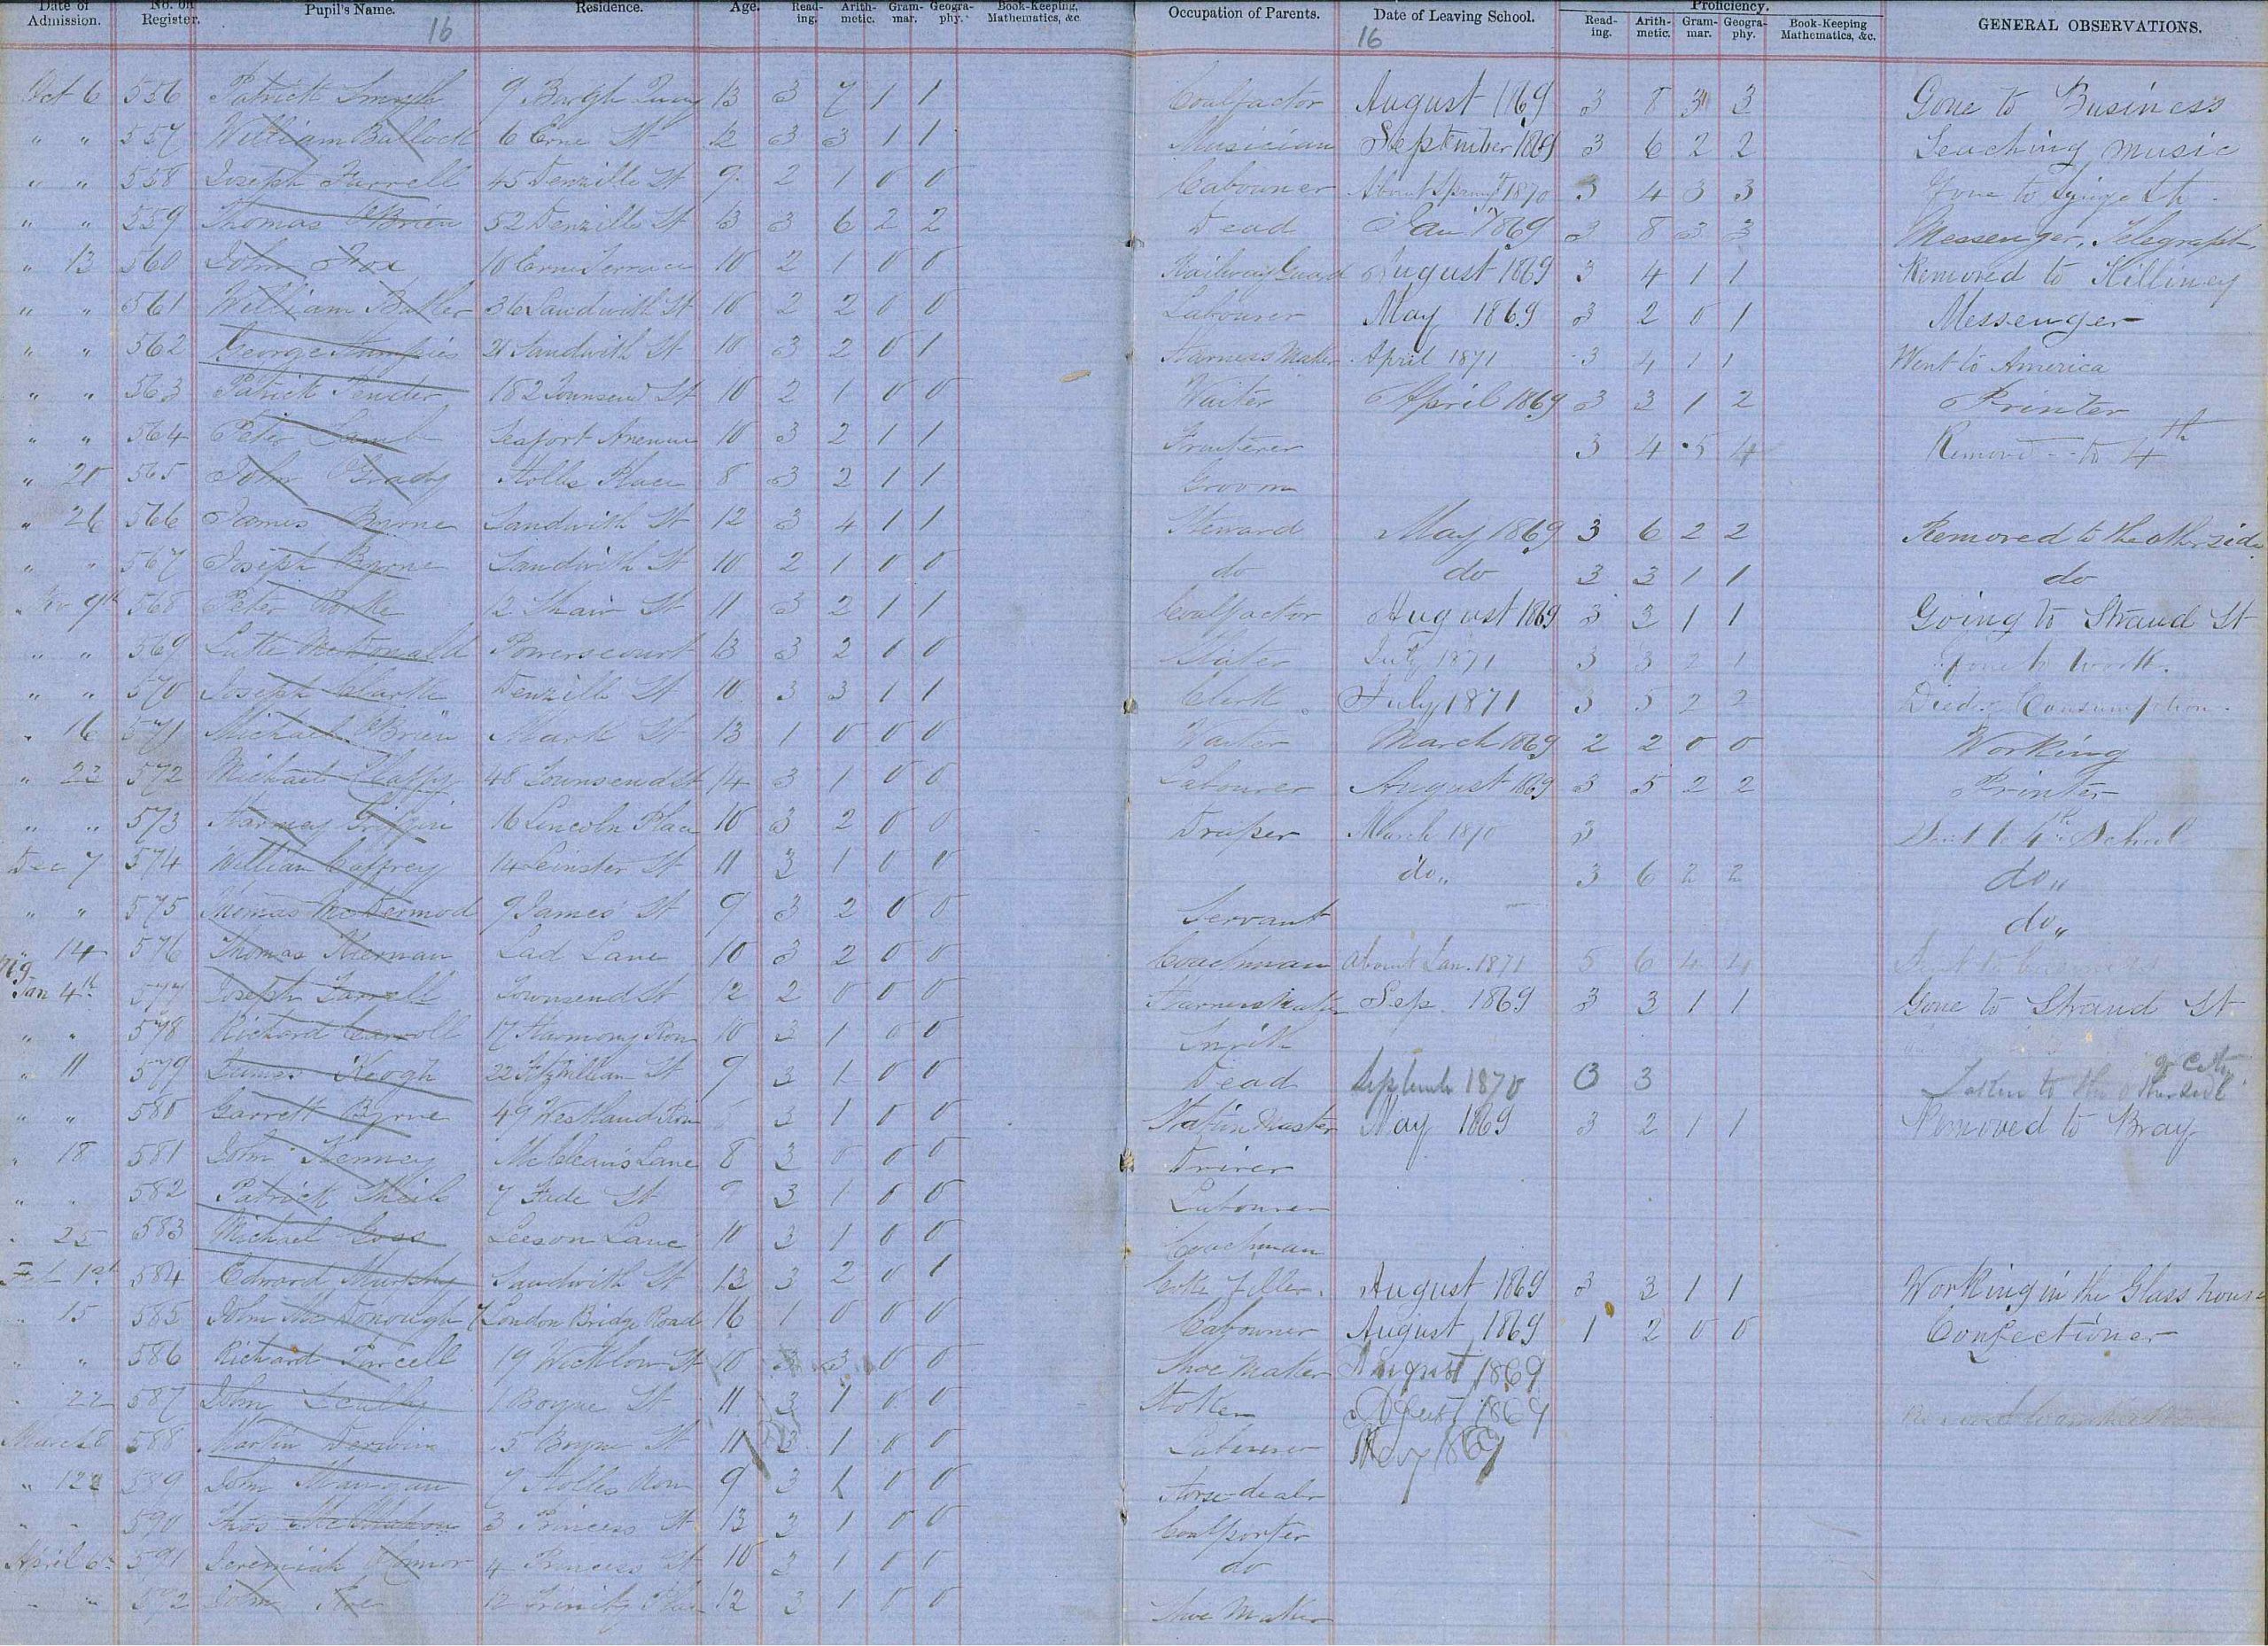 Date of Admission. No. on Register. Pupil's Name. Residence. Age. Read-ing. Arith-metic. Gram-mar. Geogra-phy. Book-Keeping, Mathematics, &c. Occupation of Parents. Date of Leaving School. Proficiency. Read-ing. Arith-metic. Gram-mar. Geogra-phy. Book-Keeping Mathematics, &c. GENERAL OBSERVATIONS.
16 16
Oct 6 556 Patrick Smyth 9 Burgh Quay 13 3 7 1 1 Coalfactor August 1869 3 8 3 3 Gone to Business
" " 557 William Bullock 6 Erne St 12 3 3 1 1 Musician September 1869 3 6 2 2 Teaching music
" " 558 Joseph Farrell 45 Denzille St 9 2 1 0 0 Cabowner About 1870 3 4 3 3 Gone to
" " 559 Thomas O'Brien 52 Denzille St 13 3 6 2 2 Dead Jan 1869 3 8 3 3 Messenger, Telegraph
" 13 560 John Fox 10 Erne Terrace 10 2 1 0 0 Railway Guard August 1869 3 4 1 1 Removed to Killiney
" " 561 William Butler 36 Sandwith St 10 2 2 0 0 Labourer May 1869 3 2 0 1 Messenger
" " 562 George Humfries 21 Sandwith St 10 3 2 0 1 Harness Maker April 1871 3 4 1 1 Went to America
" " 563 Patrick Pender 182 Townsend St 10 2 1 0 0 Waiter April 1869 3 3 1 2 Printer
" " 564 Peter Lamb Seafort Avenue 10 3 2 1 1 Fruiterer 3 4 5 4 Removed to 4th
" 20 565 John O'Grady Holles Place 8 3 2 1 1 Groom
" 26 566 James Byrne Sandwith St 12 3 4 1 1 Steward May 1869 3 6 2 2 Removed to the other side
" " 567 Joseph Byrne Sandwith St 10 2 1 0 0 do do 3 3 1 1 do
Nov 9th 568 Peter Rorke 12 Shaw St 11 3 2 1 1 Coalfactor August 1869 3 3 1 1 Going to Strand St
" " 569 Luke McDonald Powerscourt 13 3 2 1 0 Slater July 1871 3 3 2 1 Gone to work.
" " 570 Joseph Clarke Denzille St 10 3 3 1 1 Clerk July 1871 3 5 2 2 Died. Consumption.
" 16 571 Michael O'Brien Mark St 13 1 0 0 0 Waiter March 1869 2 2 0 0 Working
" 23 572 Michael Claffy 48 Townsend St 14 3 1 0 0 Labourer August 1869 3 5 2 2 Printer
" " 573 16 Lincoln Place 10 3 2 0 0 Draper March 1870 3 Sent to 4th School
Dec 7 574 William Caffrey 14 Leinster St 11 3 1 0 0 do " 3 6 2 2 do "
" " 575 Thomas McDermod 9 James' St 9 3 2 0 0 Servant do "
" 14 576 Thomas Kiernan Lad Lane 10 3 2 0 0 Coachman about Jan. 1871 5 6 4 4
Jan 4th 577 Joseph Farrell Townsend St 12 2 0 0 0 Harness Maker Sep. 1869 3 3 1 1 Gone to Strand St
" " 578 Richard Carroll 17 Harmony Row 10 3 1 0 0 Smith
" 11 579 James Keogh 22 Fitzwilliam St 9 3 1 0 0 Dead September 1870 3 3 Taken to the other side of City
" " 580 Garrett Byrne 49 Westland Row 3 1 0 0 Station Master May 1869 3 2 1 1 Removed to Bray
" 18 581 John Kenney McClean's Lane 8 3 0 0 0 Driver
" " 582 Patrick Sheils 7 St 9 3 1 0 0 Labourer
" 25 583 Michael Goss Leeson Lane 10 3 1 0 0 Coachman
Feb 1st 584 Edward Murphy Sandwith St 12 3 2 0 1 Coke Filler. August 1869 3 3 1 1 Working in the Glass house
" 15 585 John McDonough 7 London Bridge Road 16 1 0 0 0 Cabowner August 1869 1 2 0 0 Confectioner
" " 586 Richard Purcell 19 Wicklow St 10 3 3 0 0 Shoe Maker August 1869
" 22 587 John Scully 1 Boyne St 11 3 1 0 0 Stoker August 1869
March 8 588 Martin Derwin 5 Boyne St 11 3 1 0 0 Labourer May 1869
" 22 589 John Mangan 7 Holles Row 9 3 1 0 0 Horse dealer
" " 590 Thos McMahon 3 Princess St 13 3 1 0 0 Coalporter
April 6th 591 Jeremiah O'Connor 4 Princess St 10 3 1 0 0 do
" " 592 John 12 Trinity Place 12 3 1 0 0 Shoe Maker